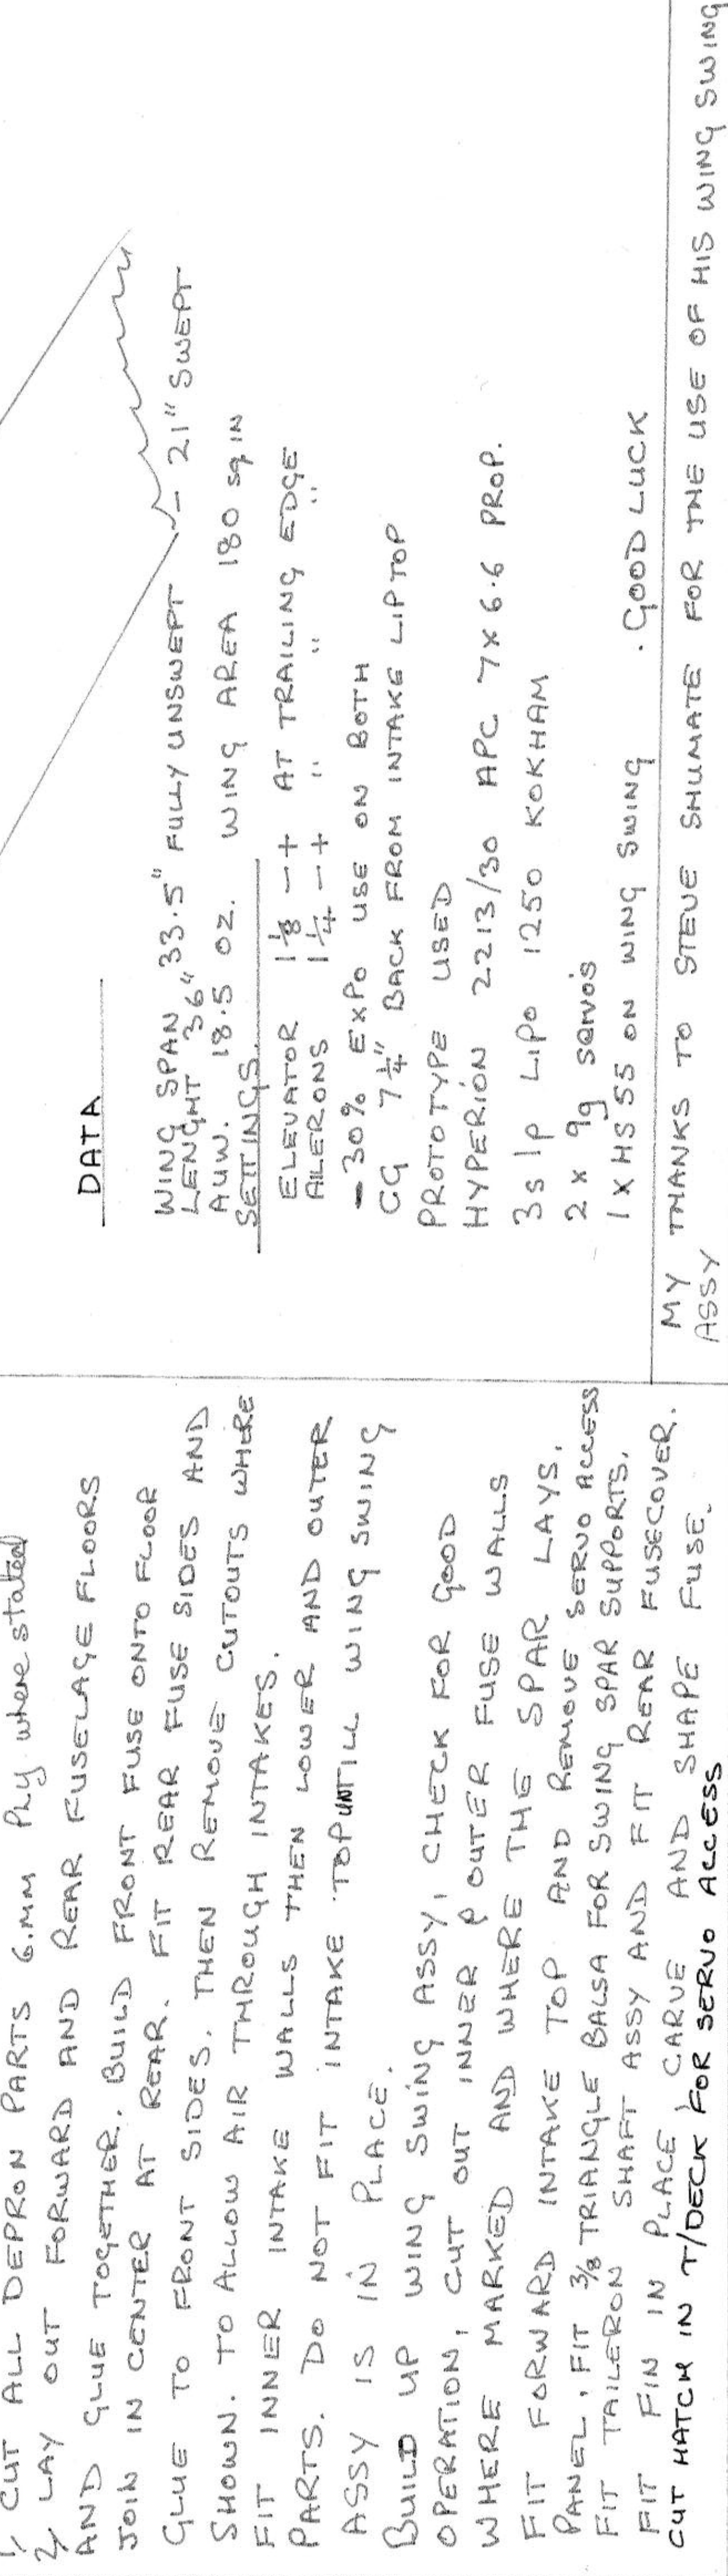 1, CUT ALL DEPRON PARTS 6.MM PLY where stated
2, LAY OUT FORWARD AND REAR FUSELAGE FLOORS
AND GLUE TOGETHER. BUILD FRONT FUSE ONTO FLOOR
JOIN IN CENTER AT REAR. FIT REAR FUSE SIDES AND
GLUE TO FRONT SIDES. THEN REMOVE CUTOUTS WHERE
SHOWN. TO ALLOW AIR THROUGH INTAKES.
FIT INNER INTAKE WALLS THEN LOWER AND OUTER
PARTS. DO NOT FIT INTAKE TOP UNTILL WING SWING
ASSY IS IN PLACE.
BUILD UP WING SWING ASSY, CHECK FOR GOOD
OPERATION, CUT OUT INNER & OUTER FUSE WALLS
WHERE MARKED AND WHERE THE SPAR LAYS.
FIT FORWARD INTAKE TOP AND REMOVE SERVO ACCESS
PANEL, FIT 3/8 TRIANGLE BALSA FOR SWING SPAR SUPPORTS.
FIT TAILERON SHAFT ASSY AND FIT REAR FUSECOVER.
FIT FIN IN PLACE, CARVE AND SHAPE FUSE.
CUT HATCH IN T/DECK FOR SERVO ACCESS
DATA
WING SPAN 33.5" FULLY UNSWEPT - 21" SWEPT
LENGHT 36"
AUW. 18.5 OZ. WING AREA 180 sq IN
SETTINGS.
ELEVATOR 1 1/8 - + AT TRAILING EDGE
AILERONS 1 1/4 - + " " "
- 30% EXPO USE ON BOTH
CG 7 1/4" BACK FROM INTAKE LIP TOP
PROTOTYPE USED
HYPERION 2213/30 APC 7x6.6 PROP.
3s 1p LIPO 1250 KOKHAM
2 x 9g servo's
1 X HS 55 ON WING SWING . GOOD LUCK
MY THANKS TO STEVE SHUMATE FOR THE USE OF HIS WING SWING
ASSY